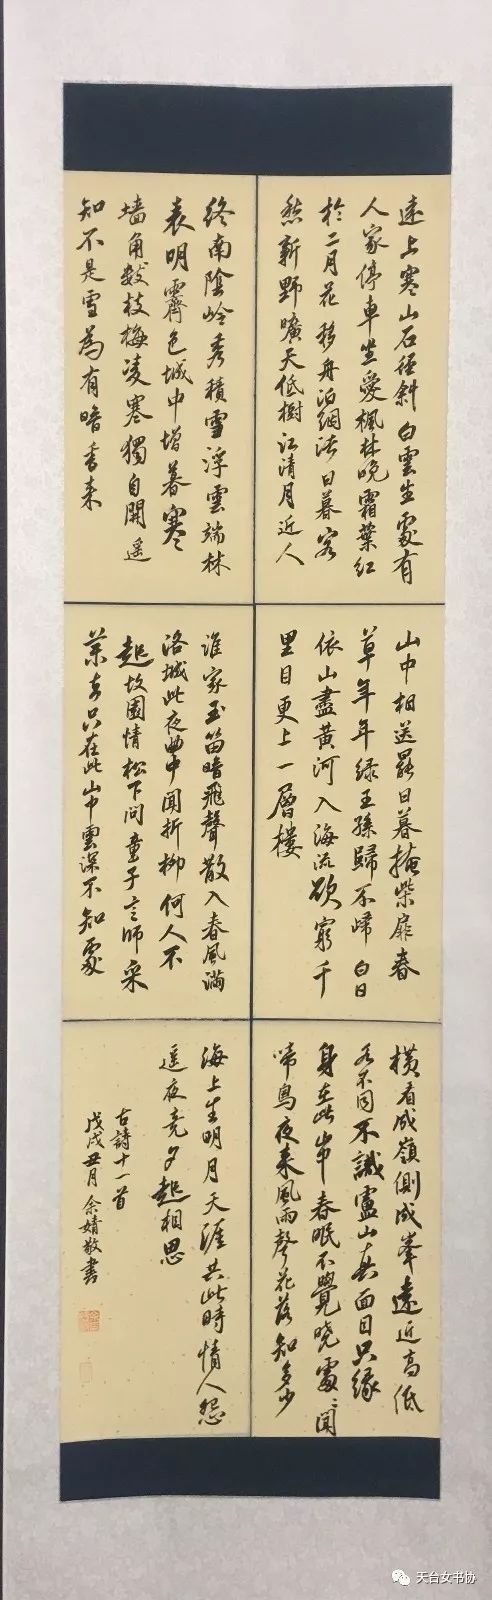 遠上寒山石径斜白雲生處有
人家停車坐愛楓林晚霜葉紅
於二月花移舟泊烟渚日暮客
愁新野曠天低樹江清月近人
終南陰岭秀積雪浮雲端林
表明霽色城中增暮寒
墙角數枝梅凌寒獨自開遥
知不是雪為有暗香来
山中相送罷日暮掩柴扉春
草年年绿王孫歸不歸白日
依山盡黄河入海流欲窮千
里目更上一層樓
誰家玉笛暗飛聲散入春風满
洛城此夜曲中聞折柳何人不
起故園情松下問童子言師采
藥去只在此山中雲深不知處
横看成嶺側成峯遠近高低
各不同不識盧山真面目只缘
身在此山中春眠不覺晓處:聞
啼鳥夜来風雨聲花落知多少
海上生明月天涯共此時情人怨
遥夜竟夕起相思
古詩十一首
戊戌丑月余婧敬書
天台女书协